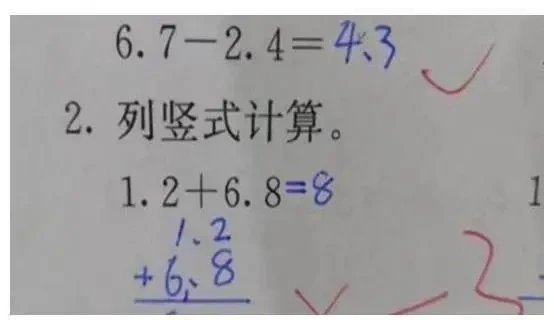 6.7－2.4＝4.3
2. 列竖式计算。
1.2＋6.8=8
1
1.2
+6.8
-3